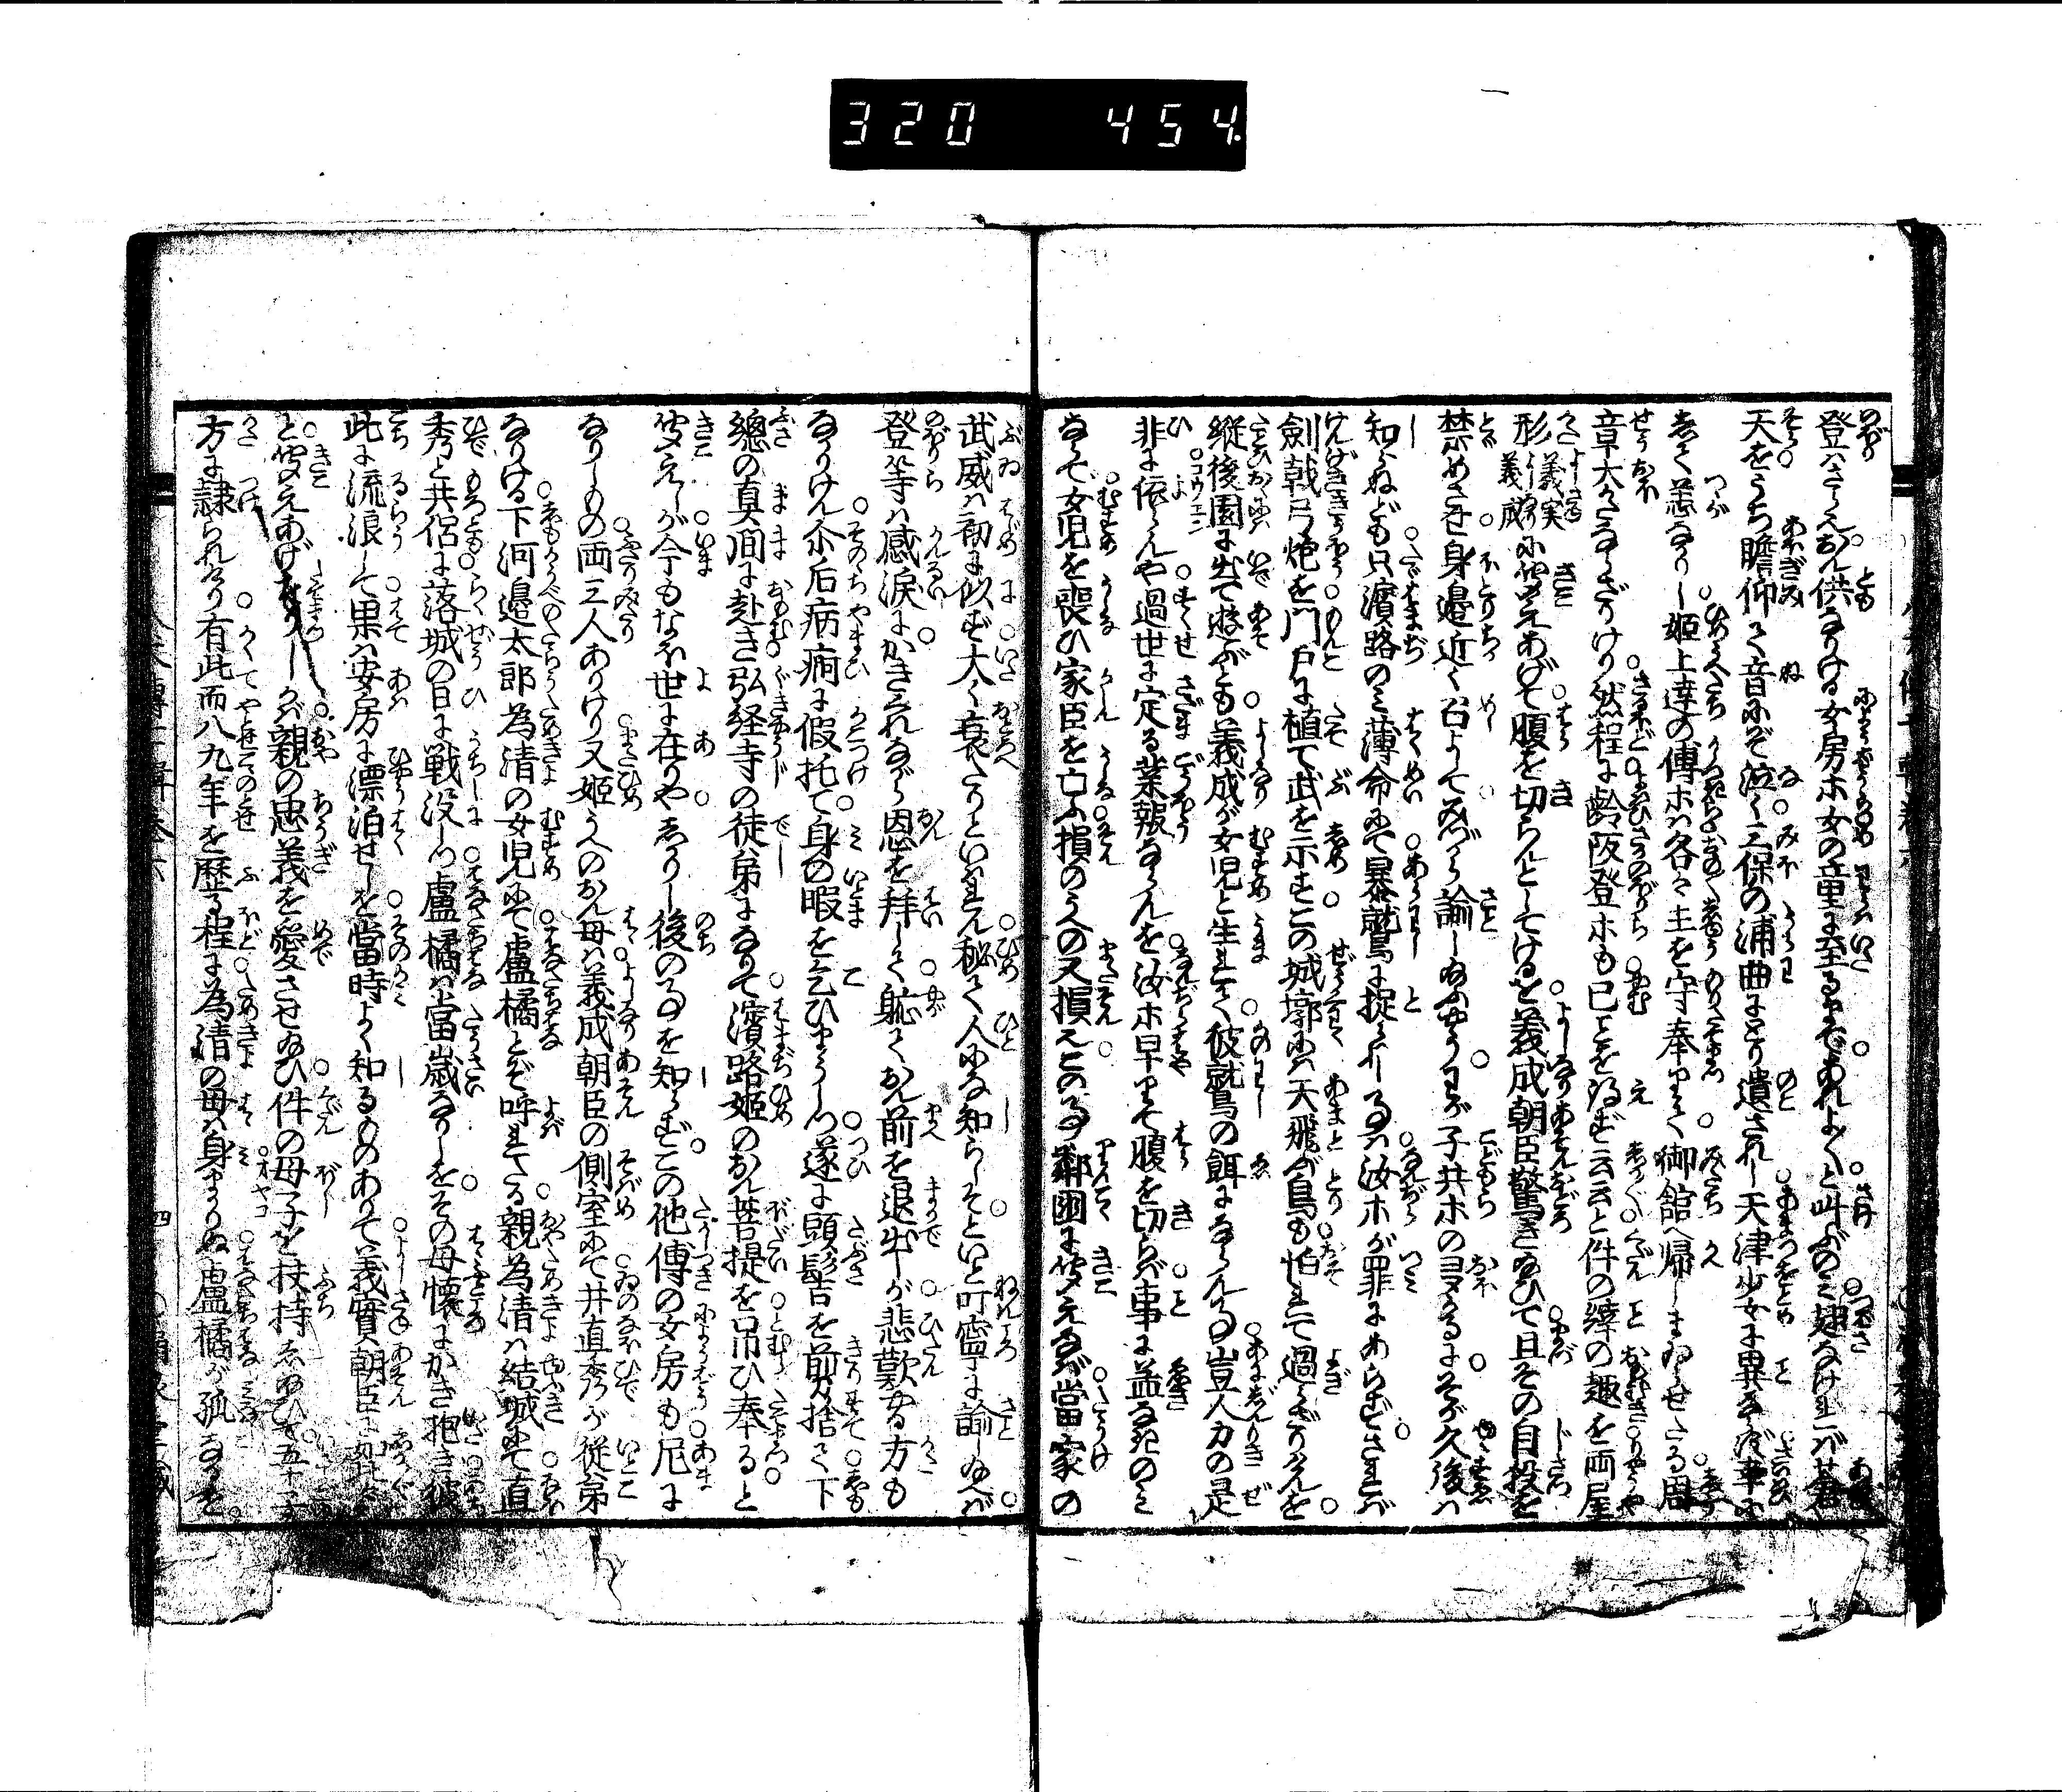 320 454
登はさら也おん供なりける女房ホ女の童に至るまであれよ〳〵と叫ぶのみ翅なければ蒼
天をうち瞻仰て音にぞ泣く三保の浦曲にとり遺されし天津少女に異ならず事に
恙なかりし姫上達の傅ホは各々主を守奉りて御館へ帰りまゐらせたる周
章大かたならざりけり然程に齢阪登ホも已ことを得ず云云と件の縡の趣を両屋
形義実義成に聞えあげて腹を切らんとしてけるを義成朝臣驚き給ひて且その自殺を
禁めさせ身邊近く召よしてみづから諭し給ふやうわが子共ホのコヽかるにそが久後は
知らねども只濱路のみ薄命にて暴鷲に捉られし事は汝ホが罪にあらずさればとて
劍戟弓炮を門戸に植て武を示すこの城墎には天飛ぶ鳥も怕れて過らざりけんを
縦後園に出て遊ぶとも義成が女児と生れて彼鷲の餌になるらん事豈人力の是
非に依らんや過世に定る業報ならんを汝ホ早りて腹を切らば事に益なきのみ
ならで女児を喪ひ家臣を亡ふ損のうへの又損ぞこの事鄰國に聞えなば當家の
武威は初に似ず大く衰たりといはれん秘て人にな知らしそといと叮寧に諭し給へば
登等は感涙にかきくれながら恩を拝して恥て御前を退出しが悲歎やる方も
なかりけん尓后病痾に假托て身の暇を乞ひまうしつ遂に頭髻を剪捨て下
總の真間に赴き弘経寺の徒弟になりて濱路姫のおん菩提を吊ひ奉ると
聞えしが今もなほ世に在りやなしや後の事を知らずこの他傅の女房も尼に
なりしもの両三人ありけり又姫うへのおん母は義成朝臣の側室にて井直秀が従弟
なりける下河邊太郎為清の女児にて盧橘とぞ呼れたる親為清は結城にて直
秀と共侶に落城の日に戦没しつ盧橘は當歳なりしをその母懐にかき抱き彼
此に流浪して果は安房に漂泊せしを當時よく知るものありて義實朝臣に如此々々
と聞えあげたりしかば親の忠義を愛させ給ひ件の母子を扶持し給ひて五十子の
方に隷られけり有此而八九年を歴る程に為清の母は身まかりぬ盧橘が孤なるを